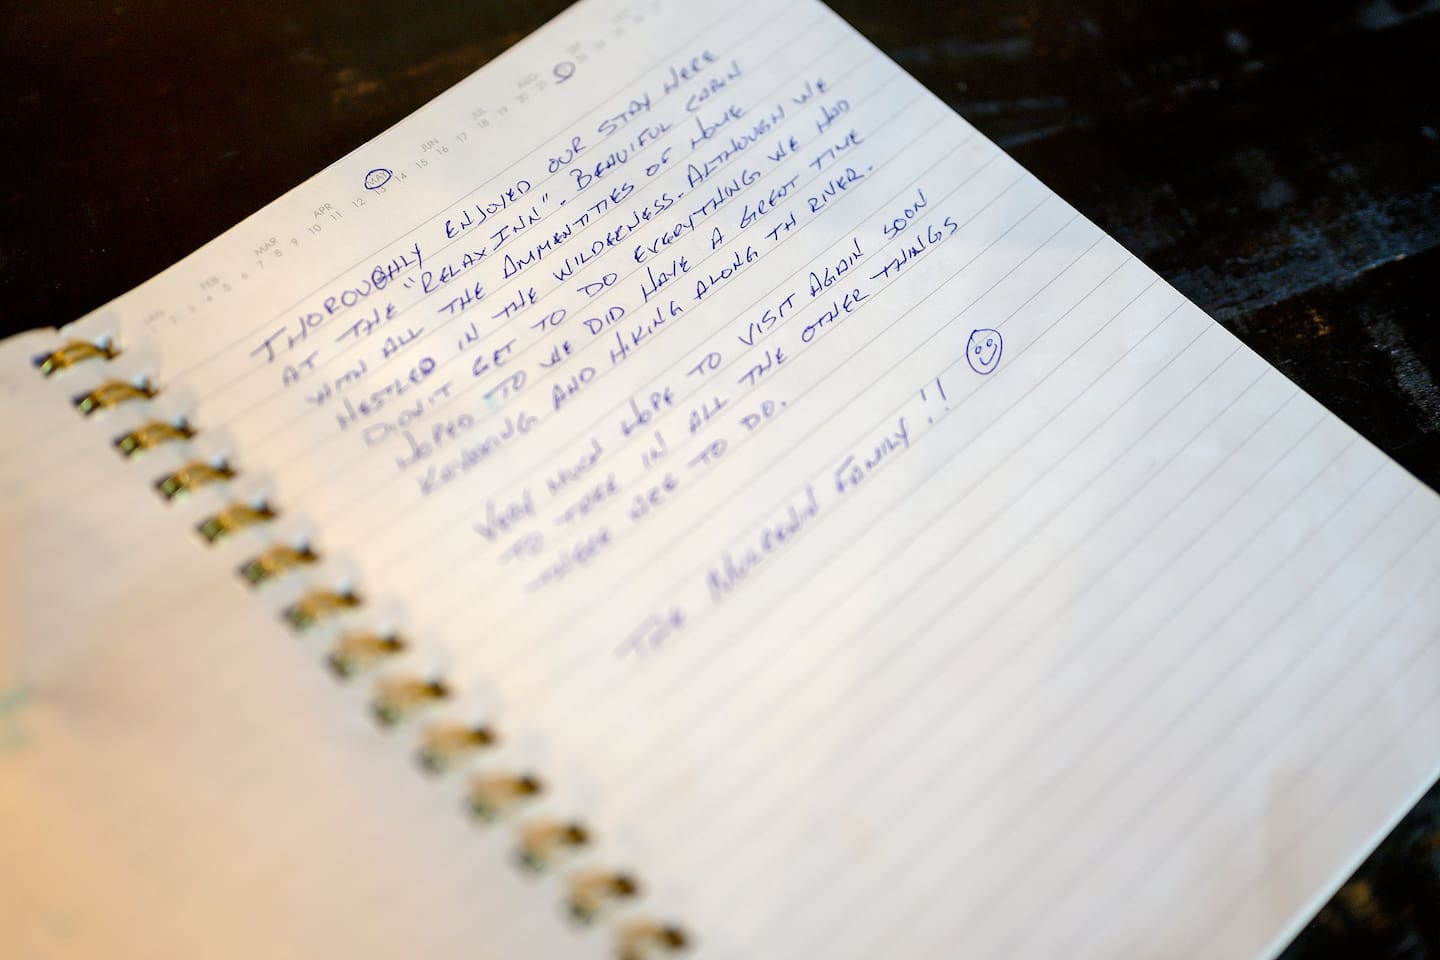 JAN FEB MAR APR MAY JUN JUL AUG SEP
1 2 3 4 5 6 7 8 9 10 11 12 13 14 15 16 17 18 19 20 21 23 24 25
THOROUGHLY ENJOYED OUR STAY HERE
AT THE "RELAX INN". BEAUIFUL CABIN
WITH ALL THE AMMENTITIES OF HOME
NESTLED IN THE WILDERNESS. ALTHOUGH WE
DIDN'T GET TO DO EVERYTHING WE HAD
HOPED TO WE DID HAVE A GREAT TIME
KAYAKING AND HIKING ALONG TH RIVER.
VERY MUCH HOPE TO VISIT AGAIN SOON
TO TAKE IN ALL THE OTHER THINGS
THERE WERE TO DO.
THE FAMILY!!